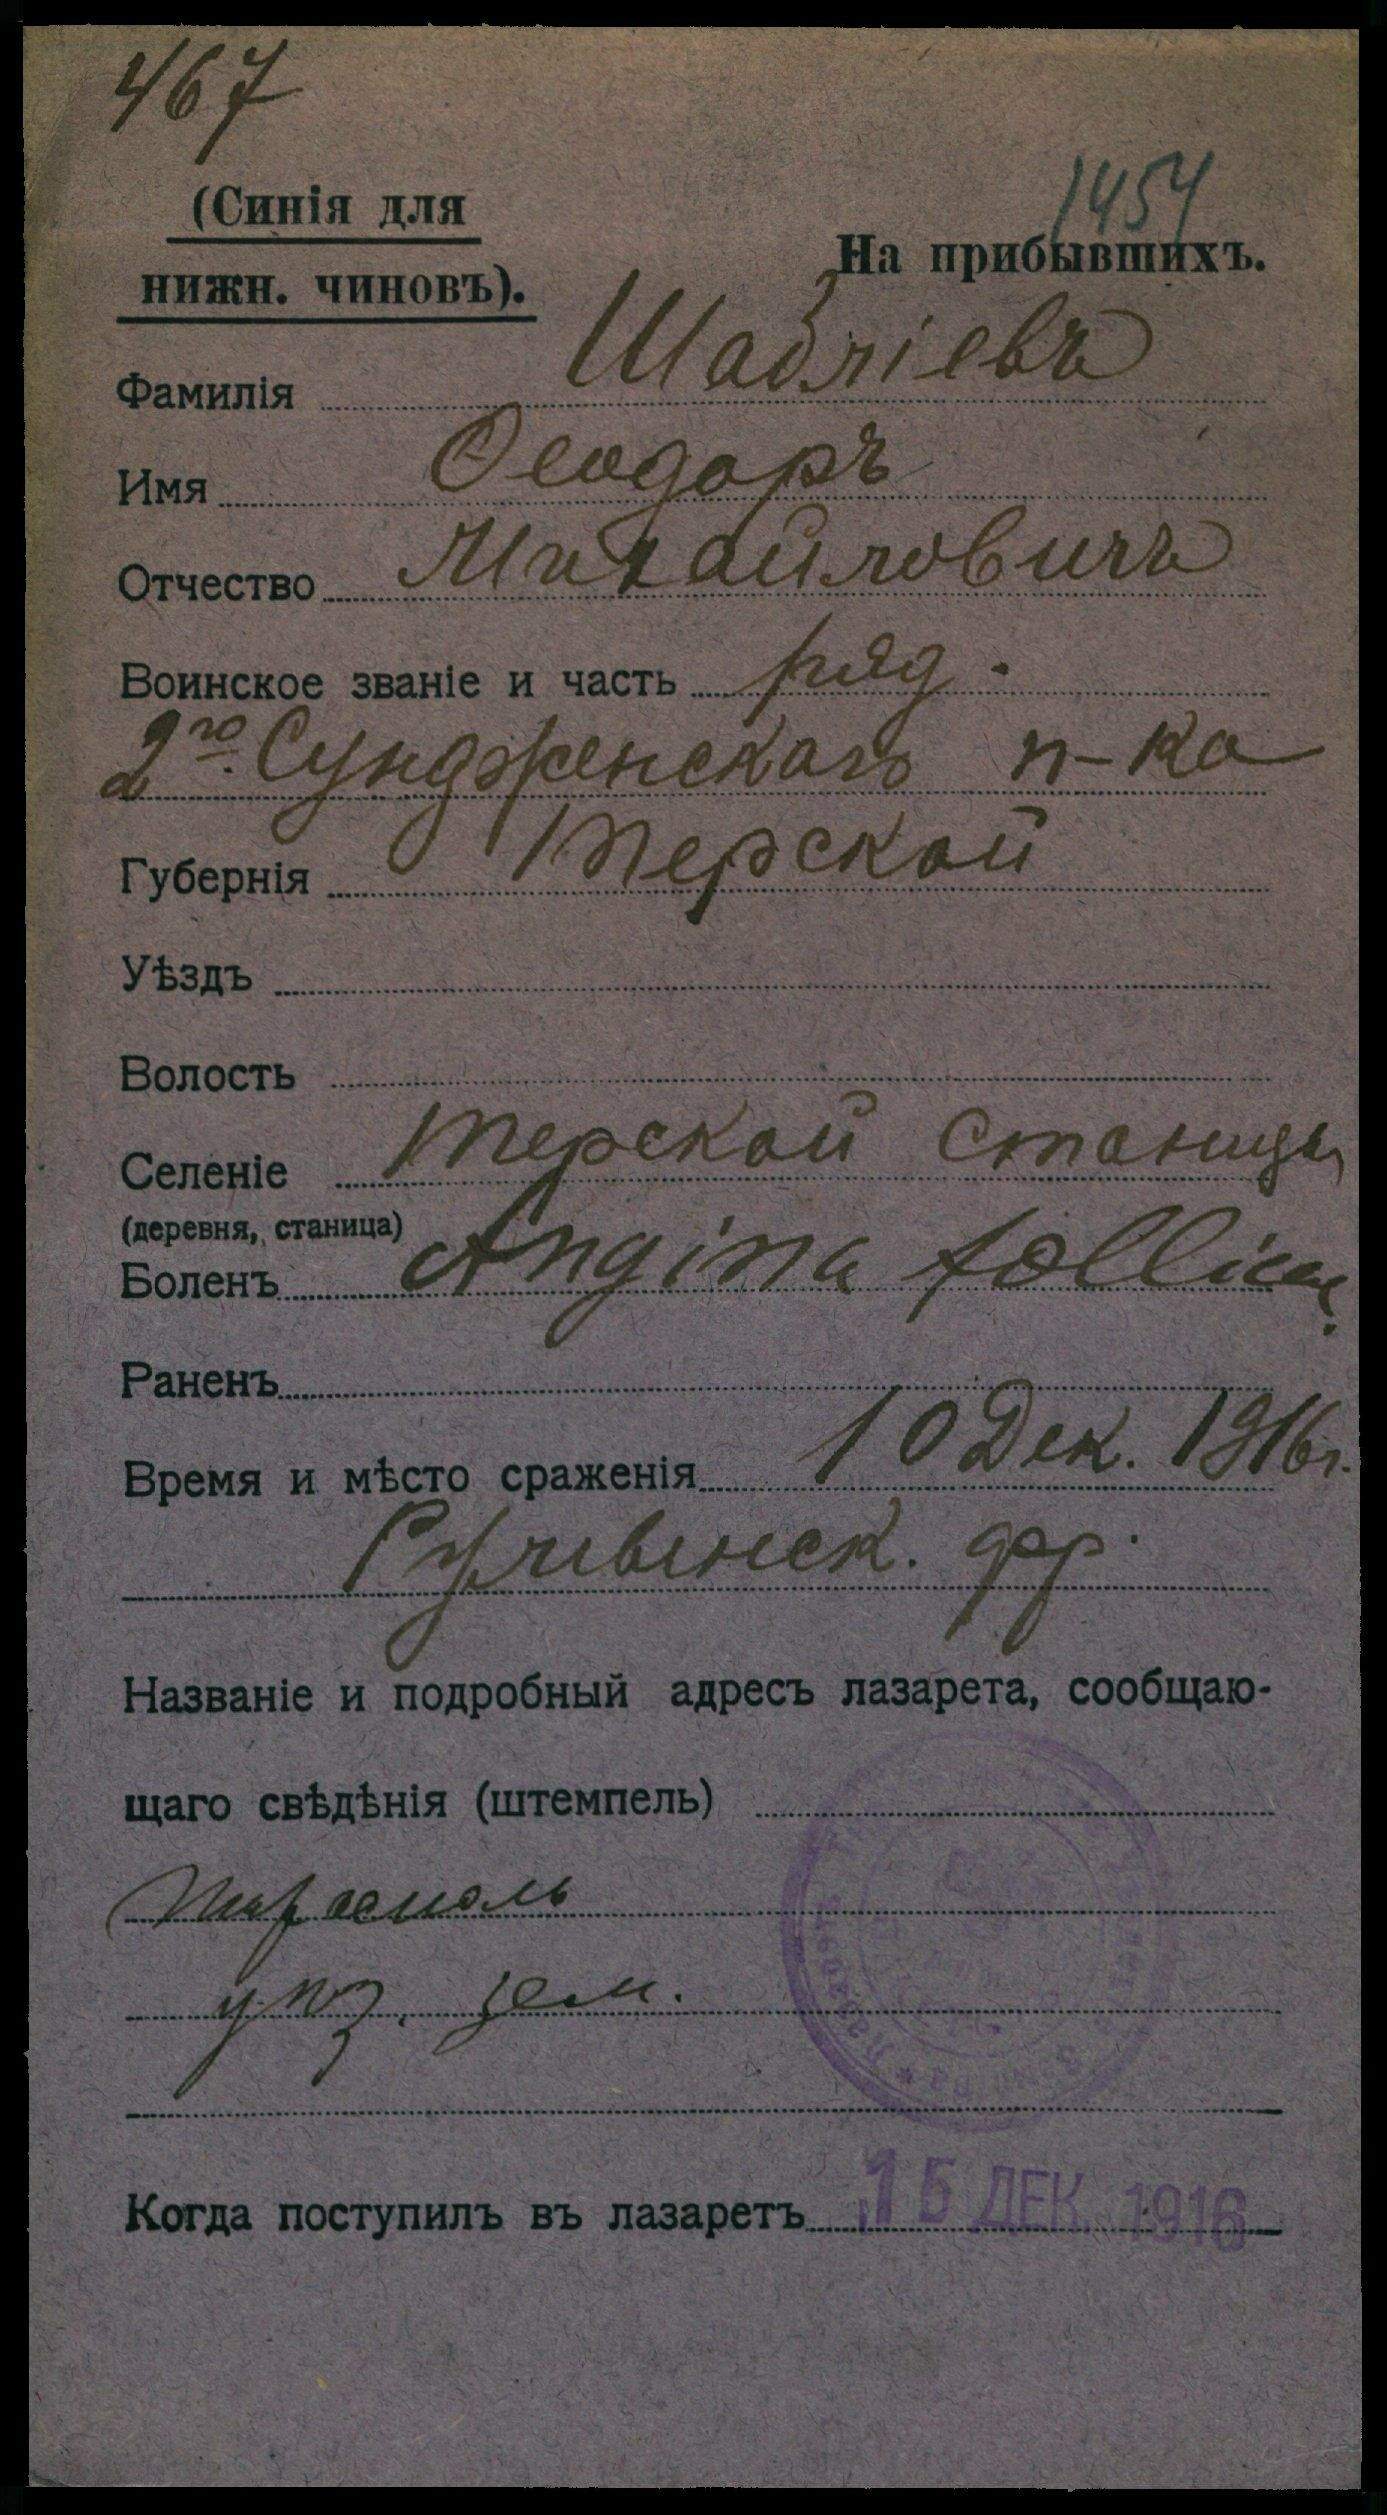 467
1454
(Синія для
нижн. чиновъ).
На прибывшихъ.
Фамилія Шабліевъ
Имя Ѳеодоръ
Отчество Михайловичъ
Воинское званіе и часть ряд.
2го Сунженскаго п-ка
Губернія Терской
Уѣздъ
Волость
Селеніе Терской станицы
(деревня, станица)
Боленъ Angina follicul.
Раненъ
Время и мѣсто сраженія 10 Дек. 1916 г.
фр.
Названіе и подробный адресъ лазарета, сообщаю-
щаго свѣдѣнія (штемпель)
Тирасполь
уѣз. зем.
Когда поступилъ въ лазаретъ 15 ДЕК 1916